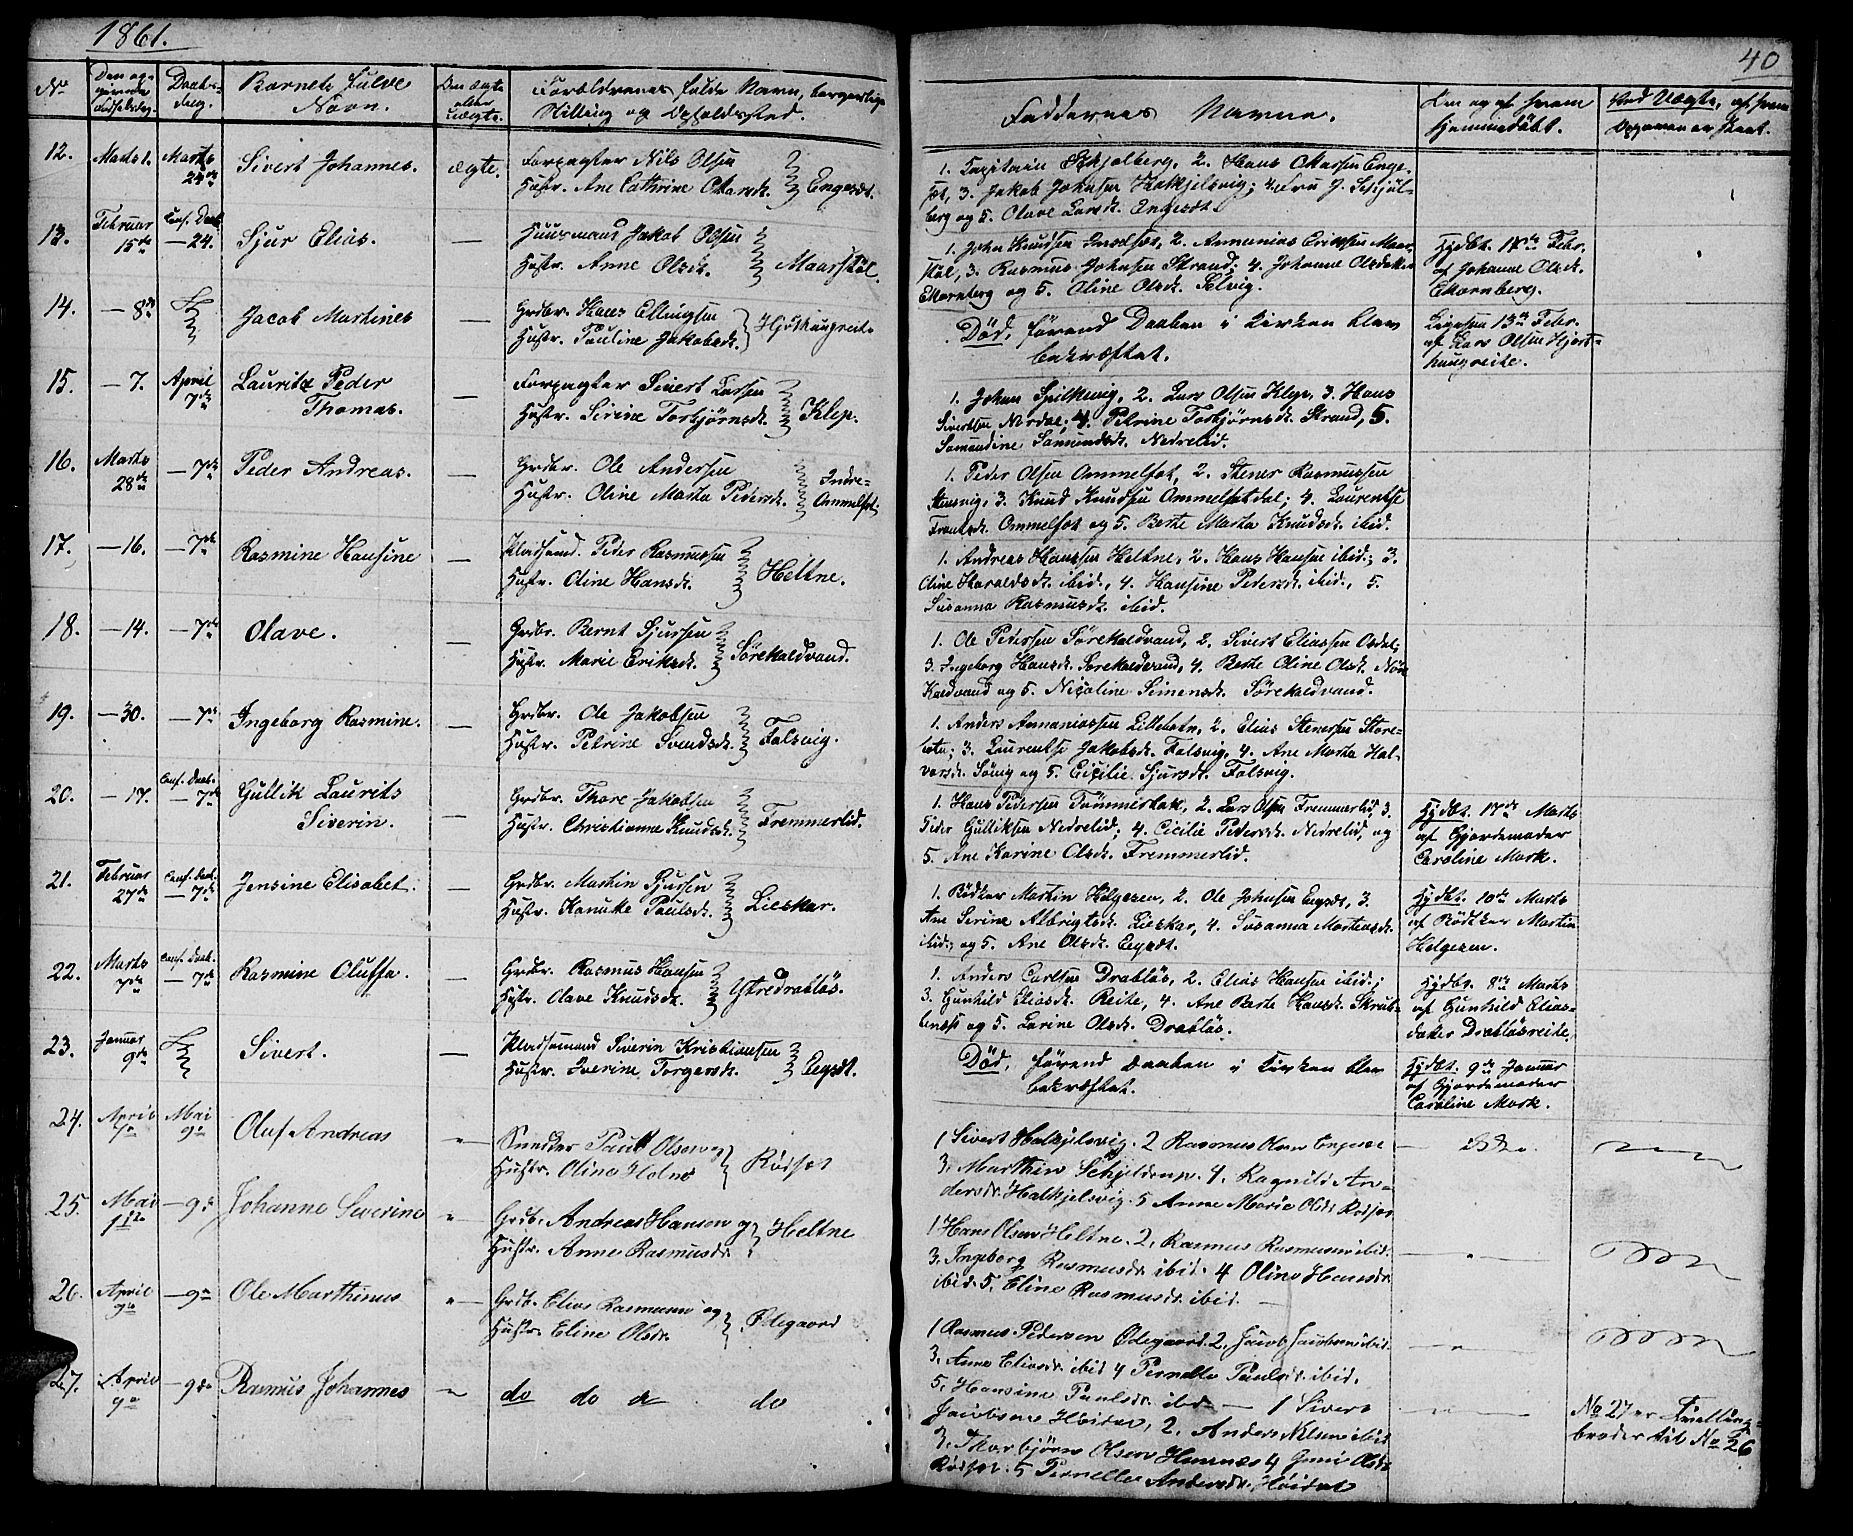 1861.
40
No
Daabs-
dag.
Barnets fulde
Navn.
Den ægte
eller
uægte.
Forældrenes fulde Navn, borgerlige
Stilling og Opholdssted.
Faddernes Navne.
Om og af hvem
hjemmedøbt.
12. Marts 1. Marts 24de Sivert Johannes. ægte.
Forpagter Nils Olsen
Hustr. Ane Cathrine
1. Capitain 2. Hans
3. Jakob Johnsen
berg og 5. Olave Larsdt. Engesæt.
13. Februar 15de Conf. Daab — 24. Sjur Elias. —
Huusmand Jakob Olsen
Hustr. Anne Olsdt. Maarstøl.
1. John Knudsen 2. Annanias Eriksen Maar-
støl, 3. Rasmus Johnsen Strand; 4. Johanne
og 5. Oline Olsdt.
Hjdbt. 18de Febr.
af Johanne Olsdt.
14. — 8de Jacob Martines —
Grdbr. Hans Ellingsen
Hustr. Pauline Jakobsdt.
Død, førend Daaben i Kirken blev
bekræftet.
Ligesaa 13de Febr.
af Lars Olsen Hjort-
haugreite.
15. — 7. April 7de Lauritz Peder
Thomas. —
Forpagter Sivert Larsen
Hustr. Sirine Torbjørnsdt. Klep.
1. Johan Spilkevig, 2. Lars Olsen Klep, 3. Hans
Sivertsen 4. Petrine Torbjørnsdt. Strand, 5.
Samundine Samundsdt. Nedrelid.
16. Marts 28de — 7de Peder Andreas. —
Grdbr. Ole Andersen
Hustr. Oline Marta Pedersdt. Indre-
Ammelfot.
1. Peder Olsen Ammelfot, 2. Stener Rasmussen
3. Knud Knudsen Ammelfotdal; 4. Laurentse
Ammelfot og 5. Berte Marta Knudsdt. ibid.
17. — 16. — 7de Rasmine Hansine —
Pladsmd. Peder Rasmussen
Hustr. Oline Hansdt. Heltne.
1. Andreas Hanssen Heltne, 2. Hans Hansen ibid.; 3.
Oline Haraldsdt. ibid., 4. Hansine Pedersdt. ibid., 5.
Susanna Rasmusdt. ibid.
18. — 14. — 7de Olave. —
Grdbr. Bernt Sjursen
Hustr. Marie Eriksdt. Sørekaldvand.
1. Ole Pedersen Sørekaldvand, 2. Sivert Eliassen Osdal;
3. Ingeborg Hansdt. Sørekaldvand, 4. Berte Oline Olsdt. Nøre
Kaldvand og 5. Nicoline Simensdt. Sørekaldvand.
19. — 30. — 7de Ingeborg Rasmine. —
Grdbr. Ole Jakobsen
Hustr. Petrine Svendsdt. Falsvig.
1. Anders Annaniassen Lillebotn, 2. Elias Stenersen Store-
botn; 3. Laurentse Jakobsdt. Falsvig, 4. Ane Marta Hal-
vorsdt. Søvig og 5. Cicilie Sjursdt. Falsvig.
20. — 17. Conf. Daab. — 7de Gullik Laurits
Siverin. —
Grdbr. Thore Jakobsen
Hustr. Christianne Knudsdt. Fremmerlid.
1. Hans Pedersen Tømmerbak, 2. Lars Olsen Fremmerlid, 3.
Peder Gulliksen Nedrelid; 4. Cicilie Pedersdt. Nedrelid, og
5. Ane Karine Olsdt. Fremmerlid.
Hjdbt. 17de Marts
af Gjordemoder
Caroline Mork.
21. Februar 27de Conf. Daab. — 7de Jensine Elisabet. —
Grdbr. Martin Sjursen
Hustr. Hanukke Paulsdt. Lieskar.
1. Bødker Martin Helgesen, 2. Ole Johnsen 3.
Ane Serine Albrigtsdt. Lieskar, 4. Susanna Mortensdt.
ibid., og 5. Ane Olsdt.
Hjdbt. 10de Marts
af Bødker Martin
Helgesen.
22. Marts 7de Conf. Daab. — 7de Rasmine Oluffa. —
Grdbr. Rasmus Hansen
Hustr. Olave Knudsdt. Ytredrabløs.
1. Anders Carlsen Drabløs, 2. Elias Hansen ibid.;
3. Gunhild Eliasdt. Reite, 4. Ane Berte Hansdt.
og 5. Larine Olsdt. Drabløs.
Hjdbt. 8de Marts
af Gunhild Elias-
datter Drabløsreite.
23. Januar 9de Sivert. —
Pladsemand Siverin Kristiansen
Hustr. Iverine Torgersdt.
Død, førend Daaben i Kirken blev
bekræftet.
Hjdbt. 9de Januar
af Gjordemoder
Caroline Mork.
24. April Mai 9de Oluf Andreas "
Snedker Paul Olsen og
Hustr. Oline Holm Rødset
1 Sivert Hatkjelsvig. 2 Rasmus Olsen Engeset
3. Marthin Schjeldrup. 4. Ragnild An-
dersdr. Hatkjelsvig. 5 Anne Marie Olsdr Rødset
25. Mai — 9de Johanne Severine "
Grdb. Andreas Hansen og
Hustr. Anne Rasmusdr. Heltne
1 Hans Olsen Heltne. 2, Rasmus Rasmusen ibid.
3. Ingeborg Rasmusdr. ibid. 4 Oline Hansdr.
ibid. 5. Eline Rasmusdr. ibid. —
26. April 9de — 9de Ole Marthinus "
Grdb. Elias Rasmusen og
Hustr. Eline Olsdr. Ødegaard
1 Rasmus Pedersen Ødegaard. 2, Jacob Jacobsen ibid.
3. Anne Eliasdr. ibid 4 Pernelle Paulsdr. ibid.
5. Hansine Paulsdr. ibd. —
27. April 9de — 9de Rasmus Johannes "
do do do do
1 Sivert
Jacobsen Høidal, 2. Anders Nilsen ibid
3. Thorbjørn Olsen 4 Olsdr.
Rødset. 5 Pernelle Andersdr. Høidal
No 27 er Tvilling-
broder til No 26